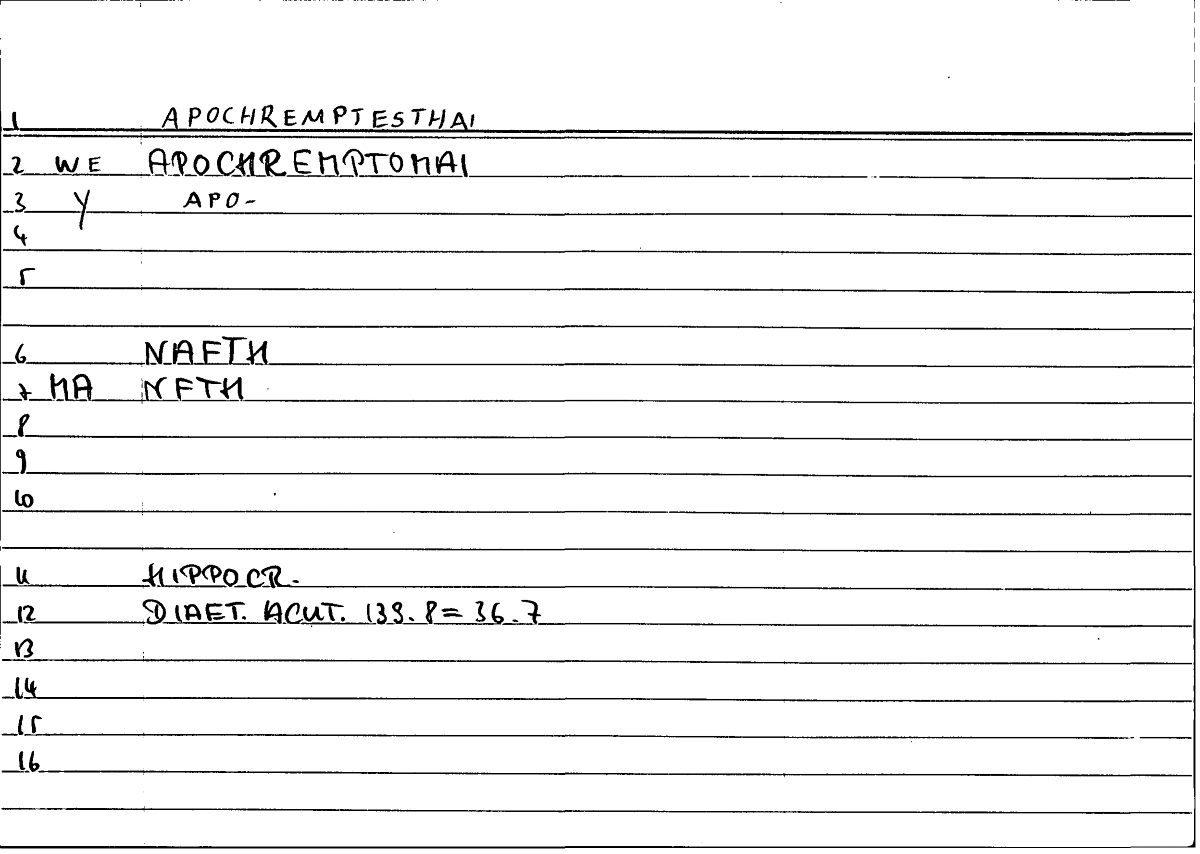 1 APOCHREMPTESTHAI
2 WE APOCHREMPTOMAI
3 Y APO-
4
5
6 NAFTH
7 MA NFTH
8
9
10
11 HIPPOCR.
12 DIAET. ACUT. 139.8 = 36.7
13
14
15
16